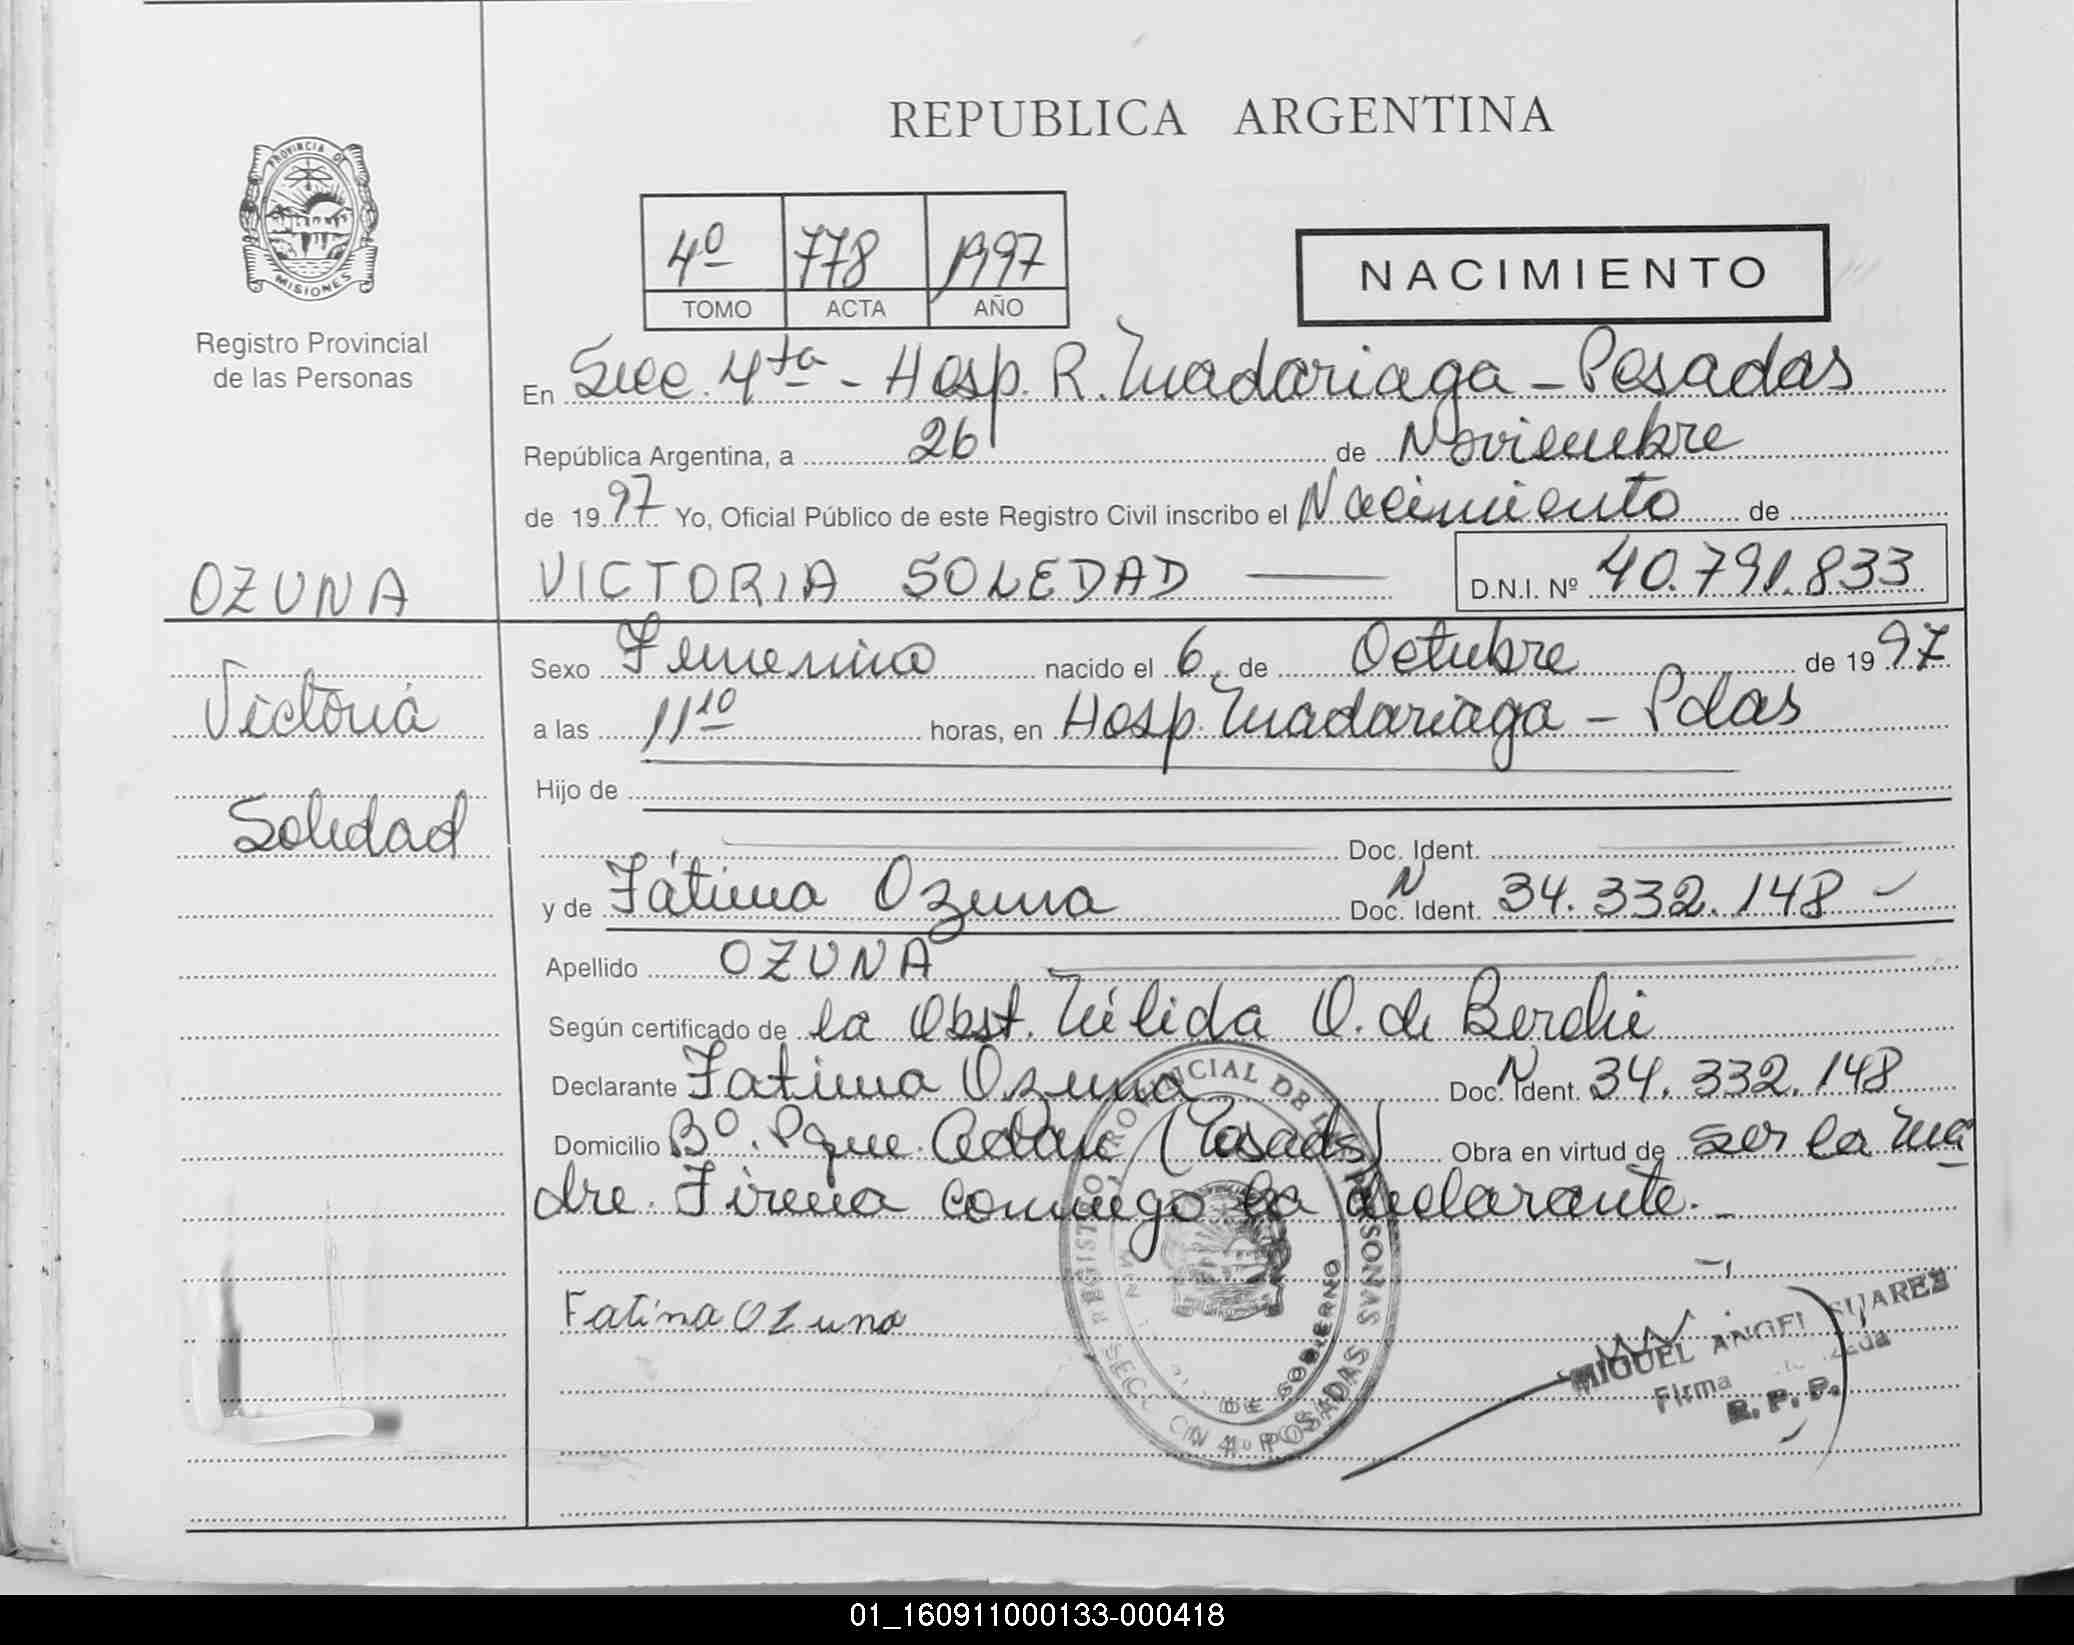 REPUBLICA ARGENTINA
PROVINCIA DE
MISIONES
Registro Provincial
de las Personas
4º 778 1997
TOMO ACTA AÑO
NACIMIENTO
En Secc. 4ta - Hosp. R. Madariaga - Posadas
República Argentina, a 26 de Noviembre
de 1997 Yo, Oficial Público de este Registro Civil inscribo el Nacimiento de
OZUNA VICTORIA SOLEDAD D.N.I. Nº 40.791.833
Sexo Femenino nacido el 6 de Octubre de 1997
Victoria
a las 11 10 horas, en Hosp. Madariaga - Pdas
Hijo de
Soledad
Doc. Ident.
y de Fátima Ozuna Doc. N Ident. 34.332.148
Apellido OZUNA
Según certificado de la Obst. Nélida O. de
Declarante Fatima Ozuna Doc. N Ident. 34.332.148
Domicilio Bº. Pque. (Posadas) Obra en virtud de ser la ma
dre. Firma conmigo la declarante.
Fatima Ozuna
REGISTRO PROVINCIAL DE LAS PERSONAS
DE GOBIERNO
SECCION 4º POSADAS
MIGUEL ANGEL SUAREZ
Firma
R. P. P.
01_160911000133-000418